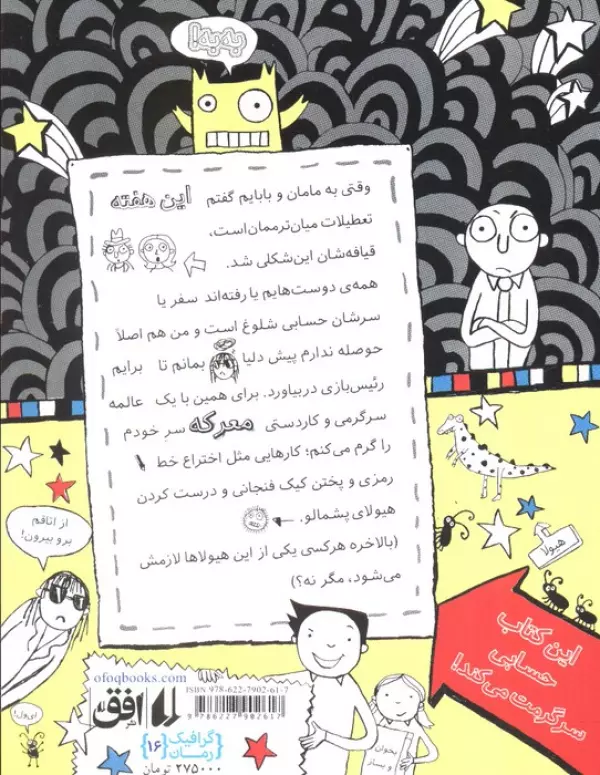 به‌به!
وقتی به مامان و بابایم گفتم این هفته
تعطیلات میان‌ترممان است،
قیافه‌شان این‌شکلی شد.
همه‌ی دوست‌هایم یا رفته‌اند سفر یا
سرشان حسابی شلوغ است و من هم اصلاً
حوصله ندارم پیش دلیا بمانم تا برایم
رئیس‌بازی دربیاورد. برای همین با یک عالمه
سرگرمی و کاردستی معرکه سرِ خودم
را گرم می‌کنم؛ کارهایی مثل اختراع خط
رمزی و پختن کیک فنجانی و درست کردن
هیولای پشمالو.
(بالاخره هرکسی یکی از این هیولاها لازمش
می‌شود، مگر نه؟)
هیولا
از اتاقم
برو بیرون!
این کتاب
حسابی
سرگرمت می‌کند!
ofoqbooks.com
ISBN 978-622-7902-61-7
9786227902617
نشر افق
گرافیک
رمان
{۱۶}
۲۷۵۰۰۰ تومان
بخوان
و بساز
ای‌ول!